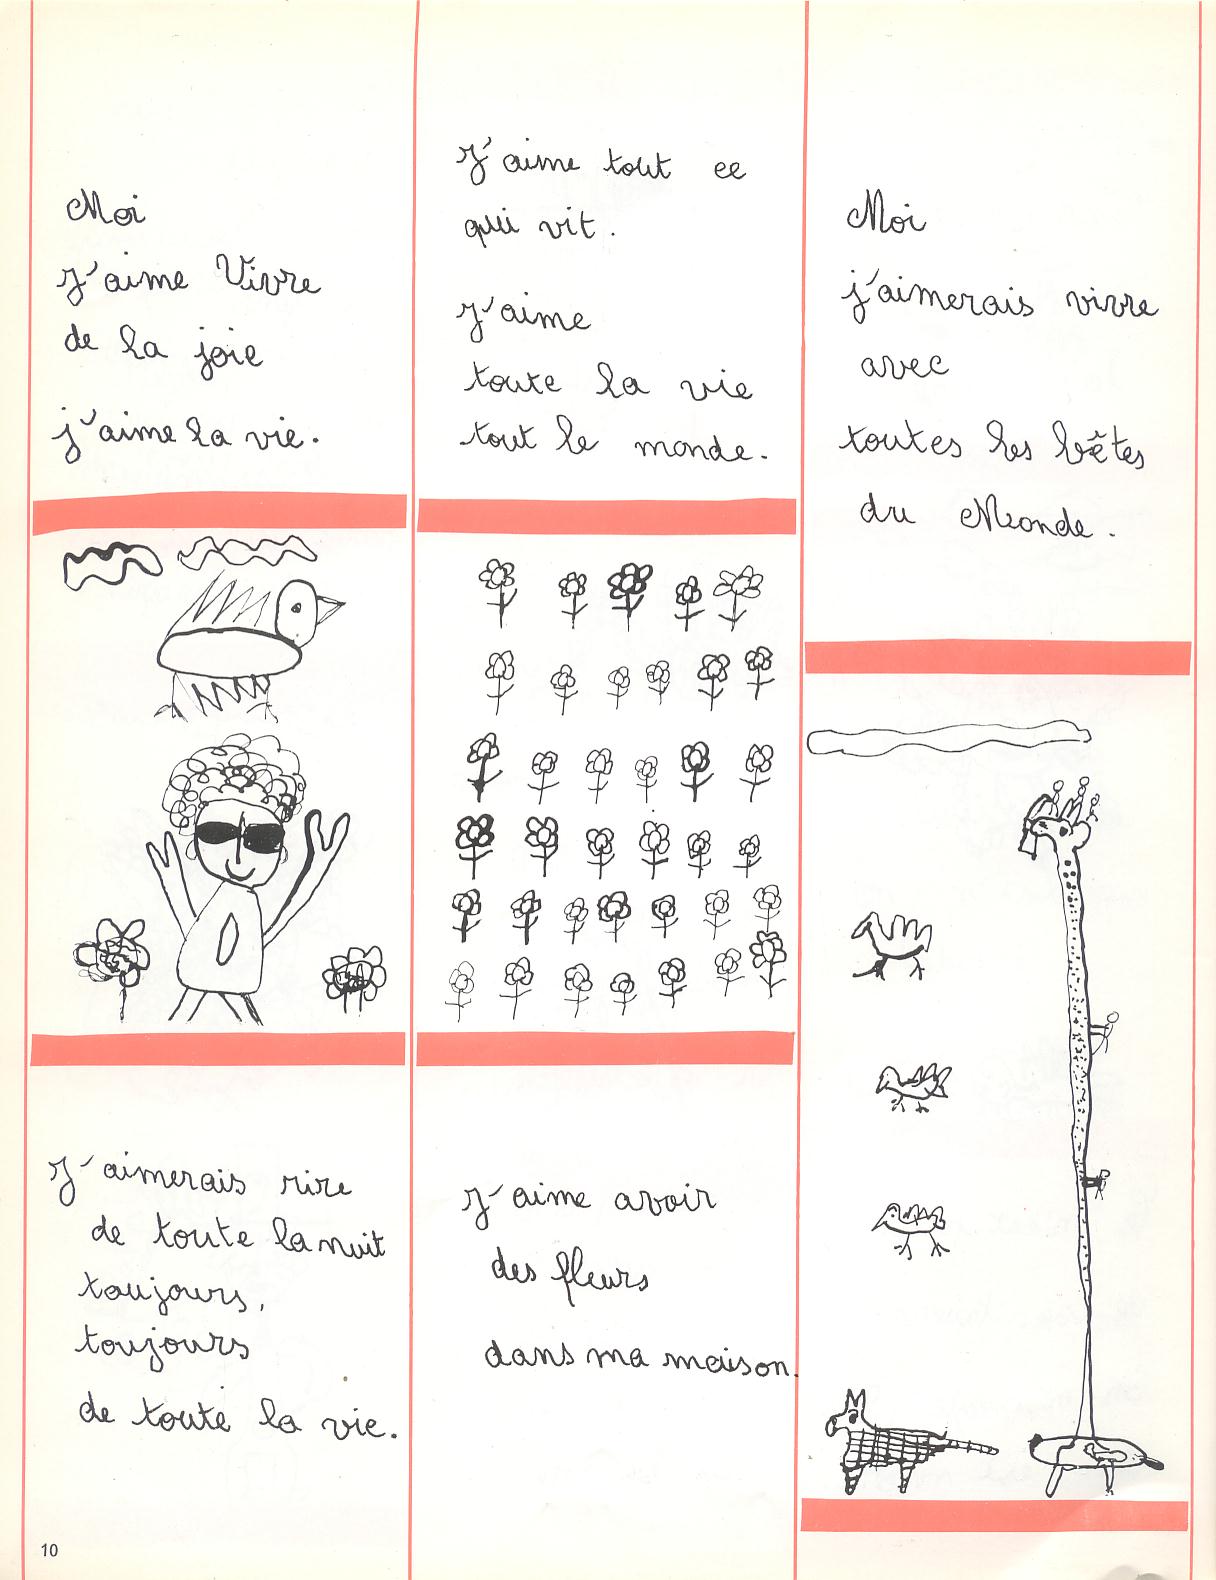 Moi
j'aime Vivre
de la joie
j'aime la vie.
j'aimerais rire
de toute la nuit
toujours,
toujours
de toute la vie.
j'aime tout ce
qui vit.
j'aime
toute la vie
tout le monde.
j'aime avoir
des fleurs
dans ma maison.
Moi
j'aimerais vivre
avec
toutes les bêtes
du Monde.
10